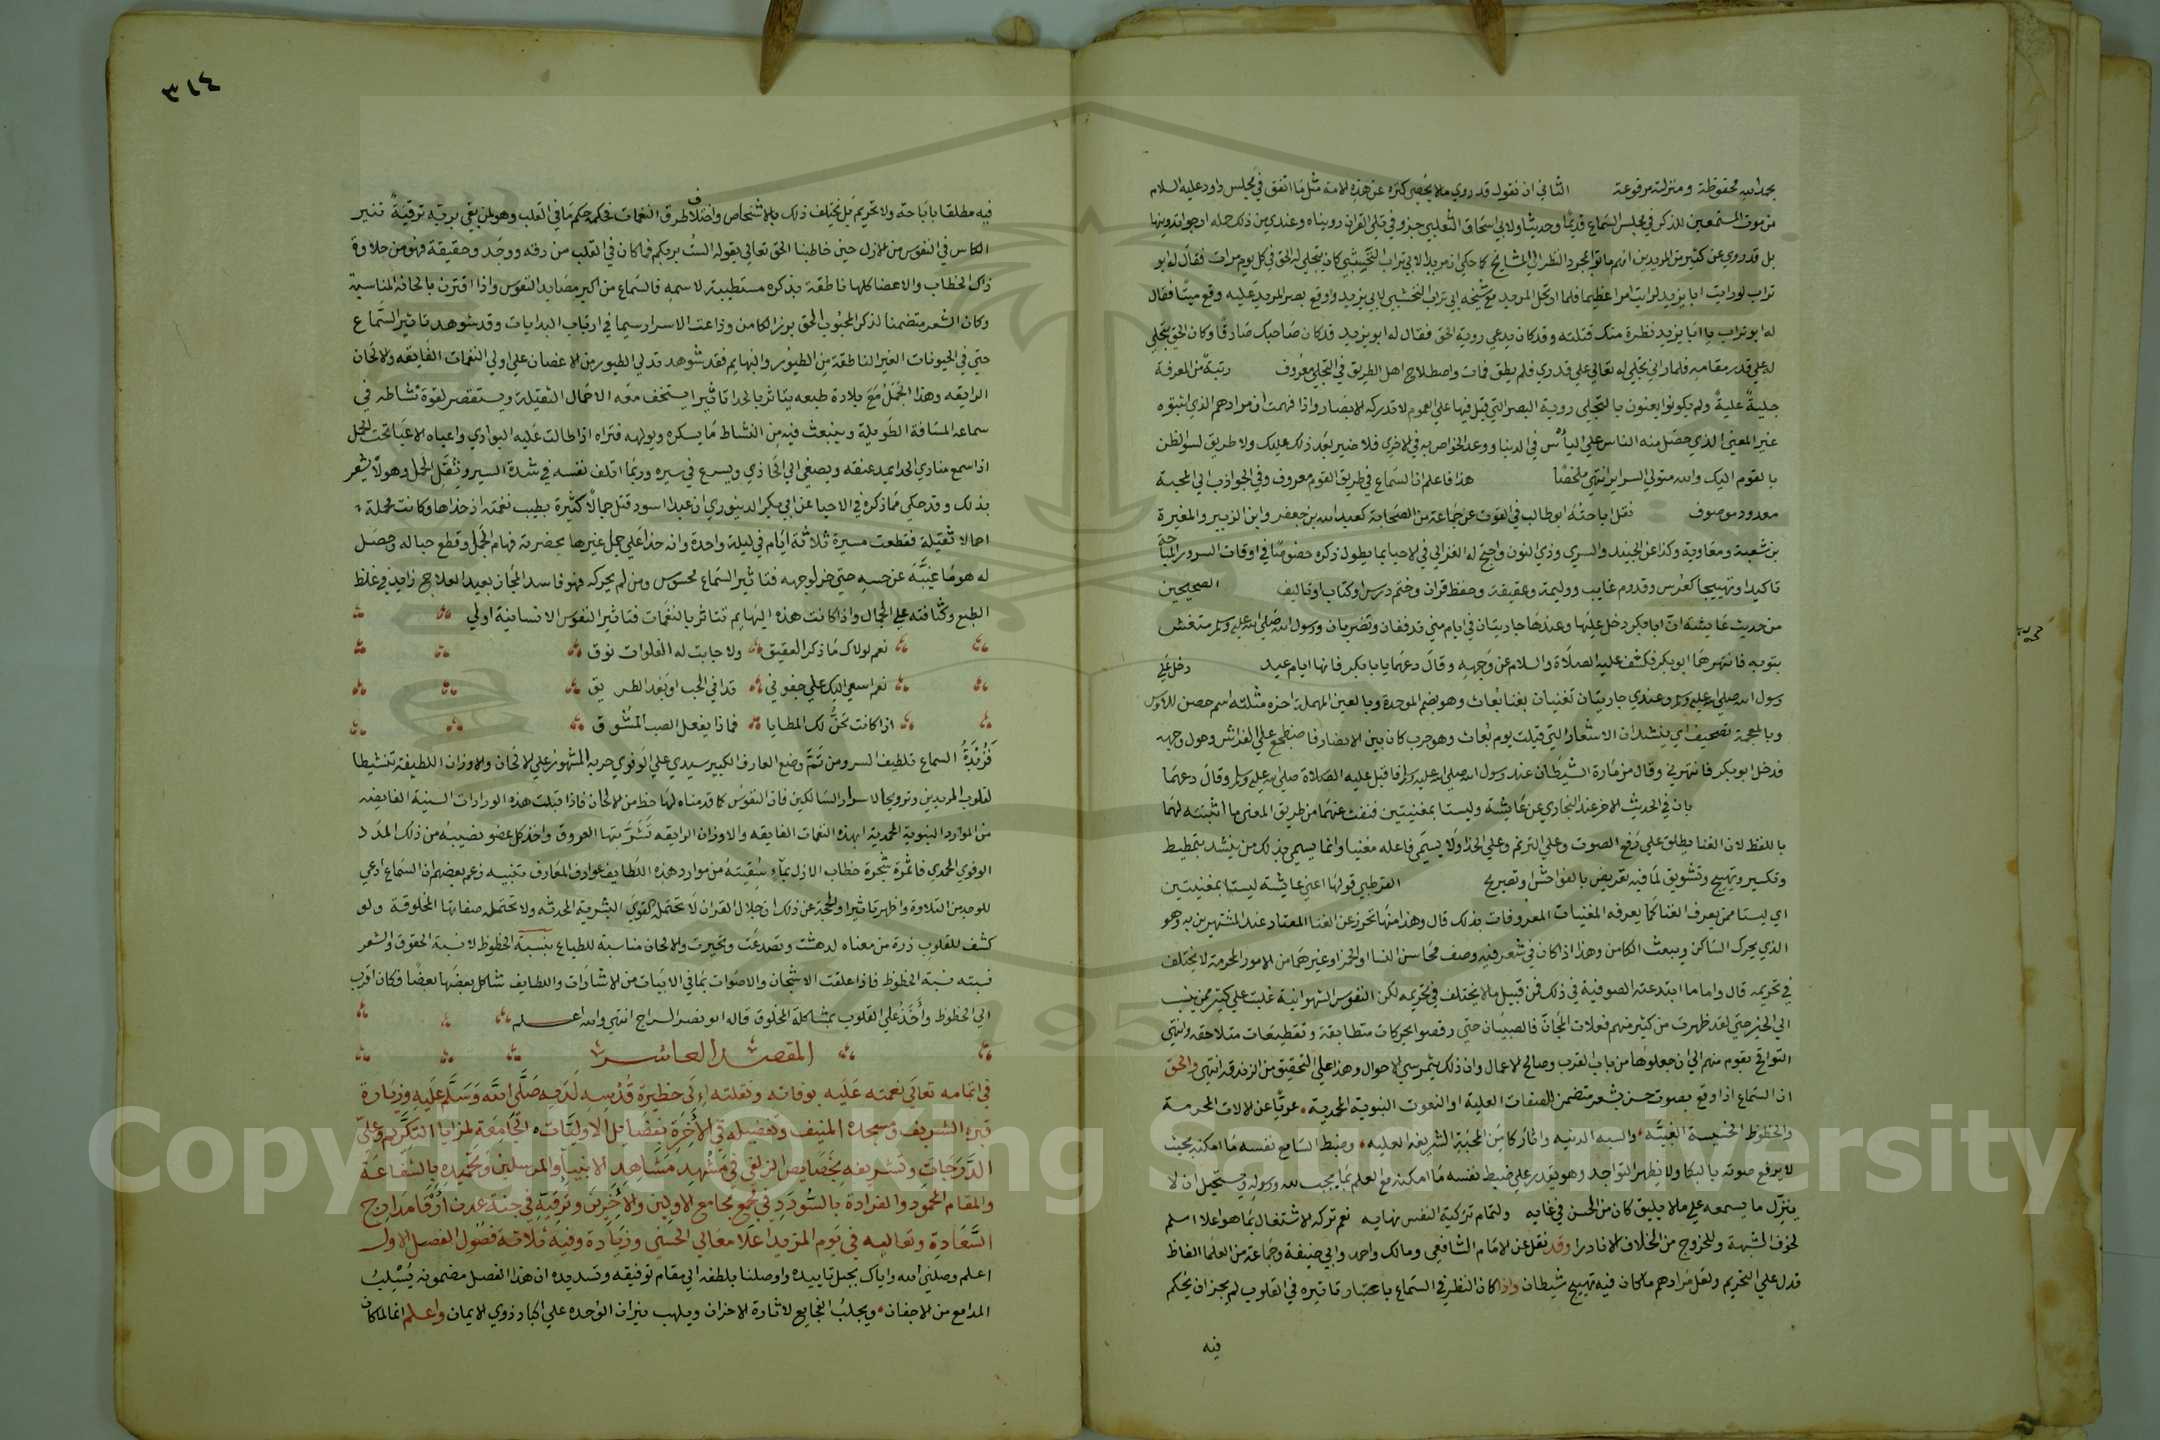 بحمد الله محفوظة ومنزلته مرفوعة الثاني ان نقول قد روي ما لا يحصى كثرة عن هذه الامة مثل ما اتفق في مجلس داود عليه السلام
من موت المستمعين للذكر في مجلس السماع قديما وحديثا ولابي اسحاق الثعلبي جزو في قتلى القران رويناه وعندي من ذلك جمله ارجوا تدوينها
بل قد روي عن كثير من المريدين انهم ماتوا بمجرد النظر الى المشايخ كما حكي ان مريدا لابي تراب النخشبي كان يتجلى له الحق في كل يوم مرات فقال له ابو
تراب لو رايت ابا يزيد لرايت امرا عظيما فلما ارتحل المريد مع شيخه ابي تراب النخشبي لابي يزيد ووقع بصر المريد عليه وقع ميتا فقال
له ابو تراب يا ابا يزيد نظرة منك قتلته وقد كان يدعي روية الحق فقال له ابو يزيد قد كان صاحبك صادقا وكان الحق يتجلى
له على قدر مقامه فلما راني تجلى له تعالى على قدري فلم يطق فمات واصطلاح اهل الطريق في التجلي معروف رتبة من المعرفة
جلية علية ولم يكونوا يعنون بالتجلي روية البصر التي قيل فيها على العموم لا تدركه الابصار واذا فهمت ان مرادهم الذي اثبتوه
غير المعنى الذي حصل منه الناس على الياس في الدنيا ووعد الخواص به في الاخرى فلا ضير بعد ذلك عليك ولا طريق لسوا لظن
بالقوم اليك والله متولي السراير انتهى ملخصا هذا فاعلم ان السماع في طريق القوم معروف وفي الجواذب الى المحبة
معدود موصوف نقل اباحته ابو طالب في القوت عن جماعة من الصحابة كعبد الله بن جعفر وابن الزبير والمغيرة
بن شعبة ومعاوية وكذا عن الجنيد والسري وذي النون واحتج له الغزالي في الاحيا بما يطول ذكره خصوصا في اوقات السرور المباحة
تاكيدا وتهييجا كعرس وقدوم غايب ووليمة وعقيقة وحفظ قران وختم درس او كتاب او تاليف الصحيحين
من حديث عايشة ان ابا بكر دخل عليها وعندها جاريتان في ايام منى تدففان وتضربان ورسول الله صلى الله عليه وسلم متغش
بثوبه فانتهرهما ابو بكر فكشف عليه الصلاة والسلام عن وجهه وقال دعهما يا ابا بكر فانها ايام عيد دخل علي
رسول الله صلى الله عليه وسلم وعندي جاريتان تغنيان بغنا بعاث وهو بضم الموحدة وبالعين المهملة اخره مثلثة اسم حصن للاوس
وبالمعجمة تصحيف اي ينشدان الاشعار التي قيلت يوم بعاث وهو حرب كان بين الانصار فاضطجع على الفراش وحول وجهه
فدخل ابو بكر فانتهرني وقال مزمارة الشيطان عند رسول الله صلى الله عليه وسلم فاقبل عليه الصلاة صلى الله عليه وسلم وقال دعهما
بان في الحديث الاخر عند البخاري عن عايشة وليستا بمغنيتين فنفت عنهما من طريق المعنى ما اثبته لهما
باللفظ لان الغنا يطلق على رفع الصوت وعلى الترنم وعلى الحدا ولا يسمى فاعله مغنيا وانما يسمى بذلك من ينشد بتمطيط
وتكسير وتهييج وتشويق لما فيه تعريض بالفواحش او تصريح القرطبي قولها اعني عايشة ليستا بمغنيتين
اي ليستا ممن يعرف الغنا كما يعرفه المغنيات المعروفات بذلك قال وهذا منها تحرز عن الغنا المعتاد عند المشتهرين به وهو
الذي يحرك الساكن ويبعث الكامن وهذا اذا كان في شعر فيه وصف محاسن النسا او الخمر او غيرهما من الامور المحرمة لا يختلف
في تحريمه قال واما ما ابتدعته الصوفية في ذلك فمن قبيل ما لا يختلف في تحريمه لكن النفوس الشهوانية غلبت على كثير ممن ينسب
الى الخير حتى لقد ظهرت من كثير منهم فعلات المجانة فالصبيان حتى رقصوا بحركات متطابقة وتقطيعات متلاحقة وانتهى
التواقح بقوم منهم الى ان جعلوها من باب القرب وصالح الاعمال وان ذلك يثمر سي الاحوال وهذا على التحقيق من الزندقة انتهى والحق
ان السماع اذا وقع بصوت حسن بشعر متضمن للصفات العلية او النعوت النبوية المحمدية عريا عن الالات المحرمة
والحظوظ الخسيسة الغيية والسبه الدنيه واثار كامن المحبة الشريفة العليه وضبط السامع نفسه ما امكنه بحيث
لا يرفع صوته بالبكا ولا يظهر التواجد وهو يقدر على ضبط نفسه ما امكنه مع العلم بما يجب لله ورسوله ويستحيل ان لا
ينزل ما يسمعه على ما لا يليق كان من الحسن في غايه ولتمام تزكية النفس نهايه نعم تركه للاشتغال بما هو اعلا اسلم
لخوف الشبهة وللخروج من الخلاف الا نادرا وقد نقل عن الامام الشافعي ومالك واحمد وابي حنيفة وجماعة من العلما الفاظ
تدل على التحريم ولعل مرادهم ما كان فيه تهييج شيطان واذا كان النظر في السماع باعتبار تاثيره في القلوب لم يجز ان يحكم
فيه
٣١٤
فيه مطلقا باباحة ولا تحريم بل يختلف ذلك بالاشخاص واختلاف طرق النغمات فحكمه حكم ما في القلب وهو لمن بقي بربه ترقية تثير
الكامن في النفوس من الازل حين خاطبنا الحق تعالى بقوله الست بربكم فما كان في القلب من رقه ووجد وحقيقة فهو من حلاوة
ذاك الخطاب والاعضا كلها ناطقة بذكره مستطيبة لاسمه فالسماع من اكبر مصايد النفوس واذا اقترن بالحانه المناسبة
وكان الشعر متضمنا لذكر المحبوب الحق برز الكامن وذاعت الاسرار سيما في ارباب البدايات وقد شوهد تاثير السماع
حتى في الحيونات الغير الناطقة من الطيور والبهايم فقد شوهد تدلي الطيور من الاغصان على اولي النغمات الفايقه والالحان
الرايقه وهذا الجمل مع بلادة طبعه يتاثر بالحدا تاثيرا يستخف معه الاحمال الثقيلة ويستقصر لقوة نشاطه في
سماعه المسافة الطويلة وينبعث فيه من النشاط ما يسكره ويولهه فتراه اذا طالت عليه البوادي واعياه الاعيا تحت الحمل
اذا سمع منادي الحدا يمد عنقه ويصغي الى الحادي ويسرع في سيره وربما اتلف نفسه في شدة السير وثقل الحمل وهو لا يشعر
بذلك وقد حكي مما ذكره في الاحيا عن ابي بكر الدينوري ان عبدا اسود قتل جمالا كثيرة بطيب نغمته اذ حداها وكانت محملة
احمالا ثقيلة فقطعت مسيرة ثلاثة ايام في ليلة واحدة وانه حدا على جمل غيرها بحضرته فهام الجمل وقطع حباله وحصل
له هو ما غيبه عن حسه حتى خر لوجهه فتاثير السماع محسوس ومن لم يحركه فهو فاسد المزاج بعيد العلاج زايد في غلظ
الطبع وكثافته على الجمال واذا كانت هذه البهايم تتاثر بالنغمات فتاثير النفوس الانسانية اولى
نعم لولاك ما ذكر العقيق ولا جابت له الفلوات نوق
نعم اسعى اليك على جفوني تدانى الحب او بعد الطريق
اذا كانت تحن لك المطايا فماذا يفعل الصب المشوق
فزبدة السماع تلطيف السر ومن ثم وضع العارف الكبير سيدي علي الوفوي حزبه المشهور على الالحان والاوزان اللطيفة تنشيطا
لقلوب المريدين وترويحا لاسرار السالكين فان النفوس كما قدمناه لها حظ من الالحان فاذا قيلت هذه الواردات السنية الفايضه
من الموارد النبوية المحمدية بهذه النغمات الفايقه والاوزان الرايقه تشربتها العروق واخذ كل عضو نصيبه من ذلك المدد
الوفوي المحمدي فاثمرة شجرة خطاب الازل بماء سقيته من موارد هذه اللطايف عوارف المعارف تنبيه زعم بعضهم ان السماع ادعى
للوجد من التلاوة واظهر تاثيرا والحجة عن ذلك ان جلال القران لا تحتمله القوى البشرية المحدثه ولا تحتمله صفاتها المخلوقة ولو
كشف للقلوب ذرة من معناه لدهشت وتصدعت وتحيرت والالحان مناسبة للطباع بنسبة الحظوظ لا نسبة الحقوق والشعر
نسبته نسبة الحظوظ فاذا علقت الاشجان والاصوات بما في الابيات من الاشارات واللطايف شاكل بعضها بعضا فكان اقرب
الى الحظوظ واخف على القلوب بمشاكلة المخلوق قاله ابو نصر السراج انتهى والله اعلم
المقصد العاشر
في اتمامه تعالى نعمته عليه بوفاته ونقلته الى حظيرة قدسه لديه صلى الله وسلم عليه وزيارة
قبره الشريف ومسجده المنيف وتفضيله في الاخرة بفضائل الاوليات الجامعة لمزايا التكريم وعلي
الدرجات وتشريفه بخصايص الزلفى في مشهد مشاهد الانبيا والمرسلين وتحميده بالشفاعة
والمقام المحمود وانفراده بالسودد في مجمع مجامع الاولين والاخرين وترقيه في جنة عدن ارقا مدارج
السعادة وتعاليه في يوم المزيد اعلا معالي الحسنى وزيادة وفيه ثلاثة فصول الفصل الاول
اعلم وصلني الله واياك بحبل تاييده واوصلنا بلطفه الى مقام توفيقه وتسديده ان هذا الفصل مضمونه يسكب
المدامع من الاجفان ويجلب الفجايع لاثارة الاحزان ويلهب نيران الوجده على اكباد ذوي الايمان واعلم انما لما كان
Copyright © King Saud University
1957